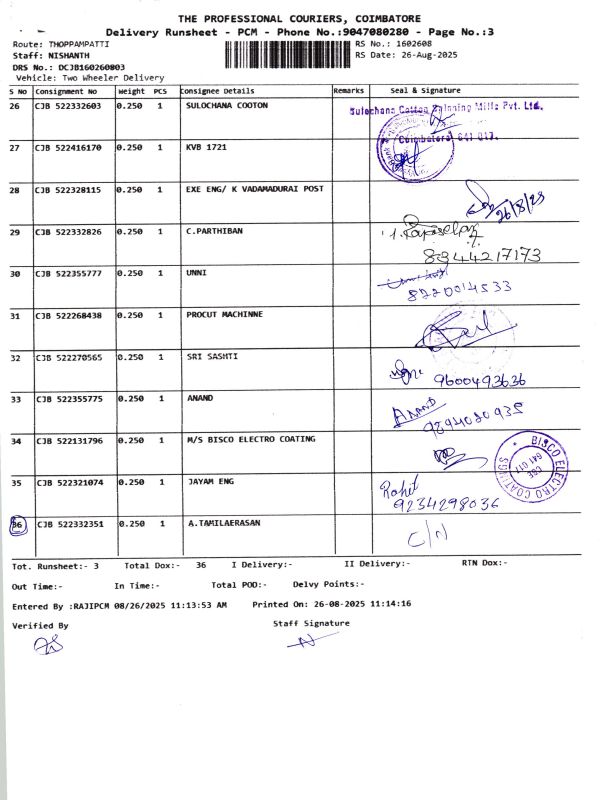 THE PROFESSIONAL COURIERS, COIMBATORE
Delivery Runsheet - PCM - Phone No.:9047080280 - Page No.:3
Route: THOPPAMPATTI RS No.: 1602608
Staff: NISHANTH RS Date: 26-Aug-2025
DRS No.: DCJB160260803
Vehicle: Two Wheeler Delivery
S No Consignment No Weight PCS Consignee Details Remarks Seal & Signature
26 CJB 522332603 0.250 1 SULOCHANA COOTON
Sulochana Cotton Spinning Mills Pvt. Ltd.
Coimbatore 641 017.
27 CJB 522416170 0.250 1 KVB 1721
28 CJB 522328115 0.250 1 EXE ENG/ K VADAMADURAI POST
26/8/25
29 CJB 522332826 0.250 1 C.PARTHIBAN
8344217173
30 CJB 522355777 0.250 1 UNNI
8220014533
31 CJB 522268438 0.250 1 PROCUT MACHINNE
32 CJB 522270565 0.250 1 SRI SASHTI
9600493636
33 CJB 522355775 0.250 1 ANAND
ANAND
9894080935
34 CJB 522131796 0.250 1 M/S BISCO ELECTRO COATING
BISCO ELECTRO COATINGS
CBE
641 017
35 CJB 522321074 0.250 1 JAYAM ENG
Rohit
9234298036
36 CJB 522332351 0.250 1 A.TAMILAERASAN
C/N
Tot. Runsheet:- 3 Total Dox:- 36 I Delivery:- II Delivery:- RTN Dox:-
Out Time:- In Time:- Total POD:- Delvy Points:-
Entered By :RAJIPCM 08/26/2025 11:13:53 AM Printed On: 26-08-2025 11:14:16
Verified By Staff Signature